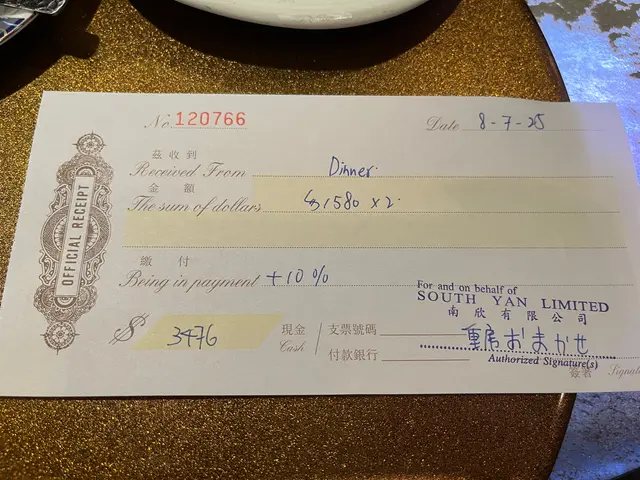 No. 120766
Date 8-7-25
茲收到
Received From Dinner.
金額
The sum of dollars $1580 x 2.
繳付
Being in payment +10%
For and on behalf of
SOUTH YAN LIMITED
南欣有限公司
$ 3476
現金
Cash
支票號碼
付款銀行
おまかせ
Authorized Signature(s)
簽署
OFFICIAL RECEIPT